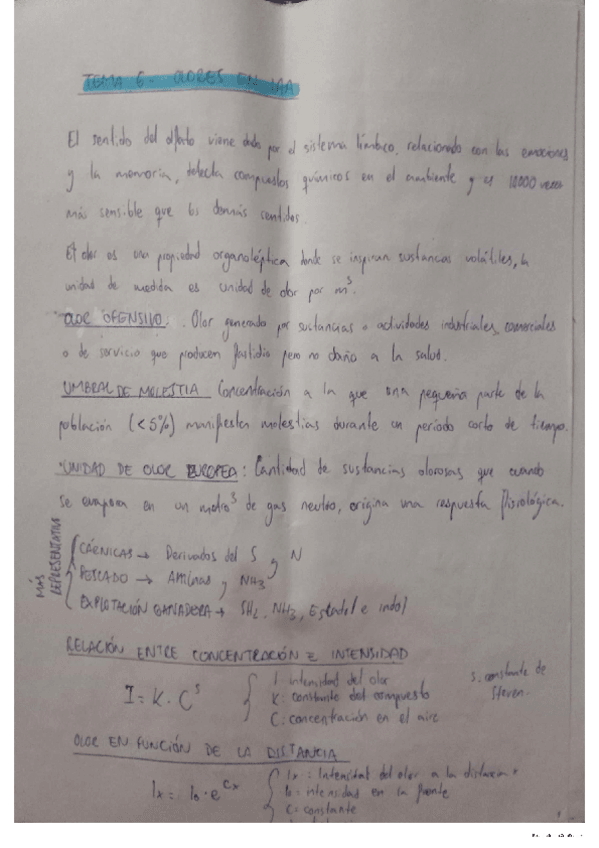 TEMA 6 - OLORES EN IAA
El sentido del olfato viene dado por el sistema límbico, relacionado con las emociones
y la memoria, detecta compuestos químicos en el ambiente y es 10000 veces
más sensible que los demás sentidos.
El olor es una propiedad organoléptica donde se inspiran sustancias volátiles, la
unidad de medida es unidad de olor por m³.
OLOR OFENSIVO: Olor generado por sustancias o actividades industriales, comerciales
o de servicio que producen fastidio pero no daño a la salud.
UMBRAL DE MOLESTIA Concentración a la que una pequeña parte de la
población (<5%) manifiesta molestias durante un periodo corto de tiempo.
UNIDAD DE OLOR EUROPEA: Cantidad de sustancias olorosas que cuando
se evapora en un metro³ de gas neutro, origina una respuesta fisiológica.
MÁS REPRESENTATIVA
CÁRNICAS → Derivados del S y N
PESCADO → Aminas y NH3
EXPLOTACIÓN GANADERA → SH2, NH3, Escatol e indol
RELACIÓN ENTRE CONCENTRACIÓN E INTENSIDAD
I = K · C^s
I intensidad del olor
K: constante del compuesto
C: concentración en el aire
s. constante de
Steven.
OLOR EN FUNCIÓN DE LA DISTANCIA
Ix = Io · e^cx
Ix: Intensitat del olor a la distancia x
Io = intensidad en la fuente
C = constante